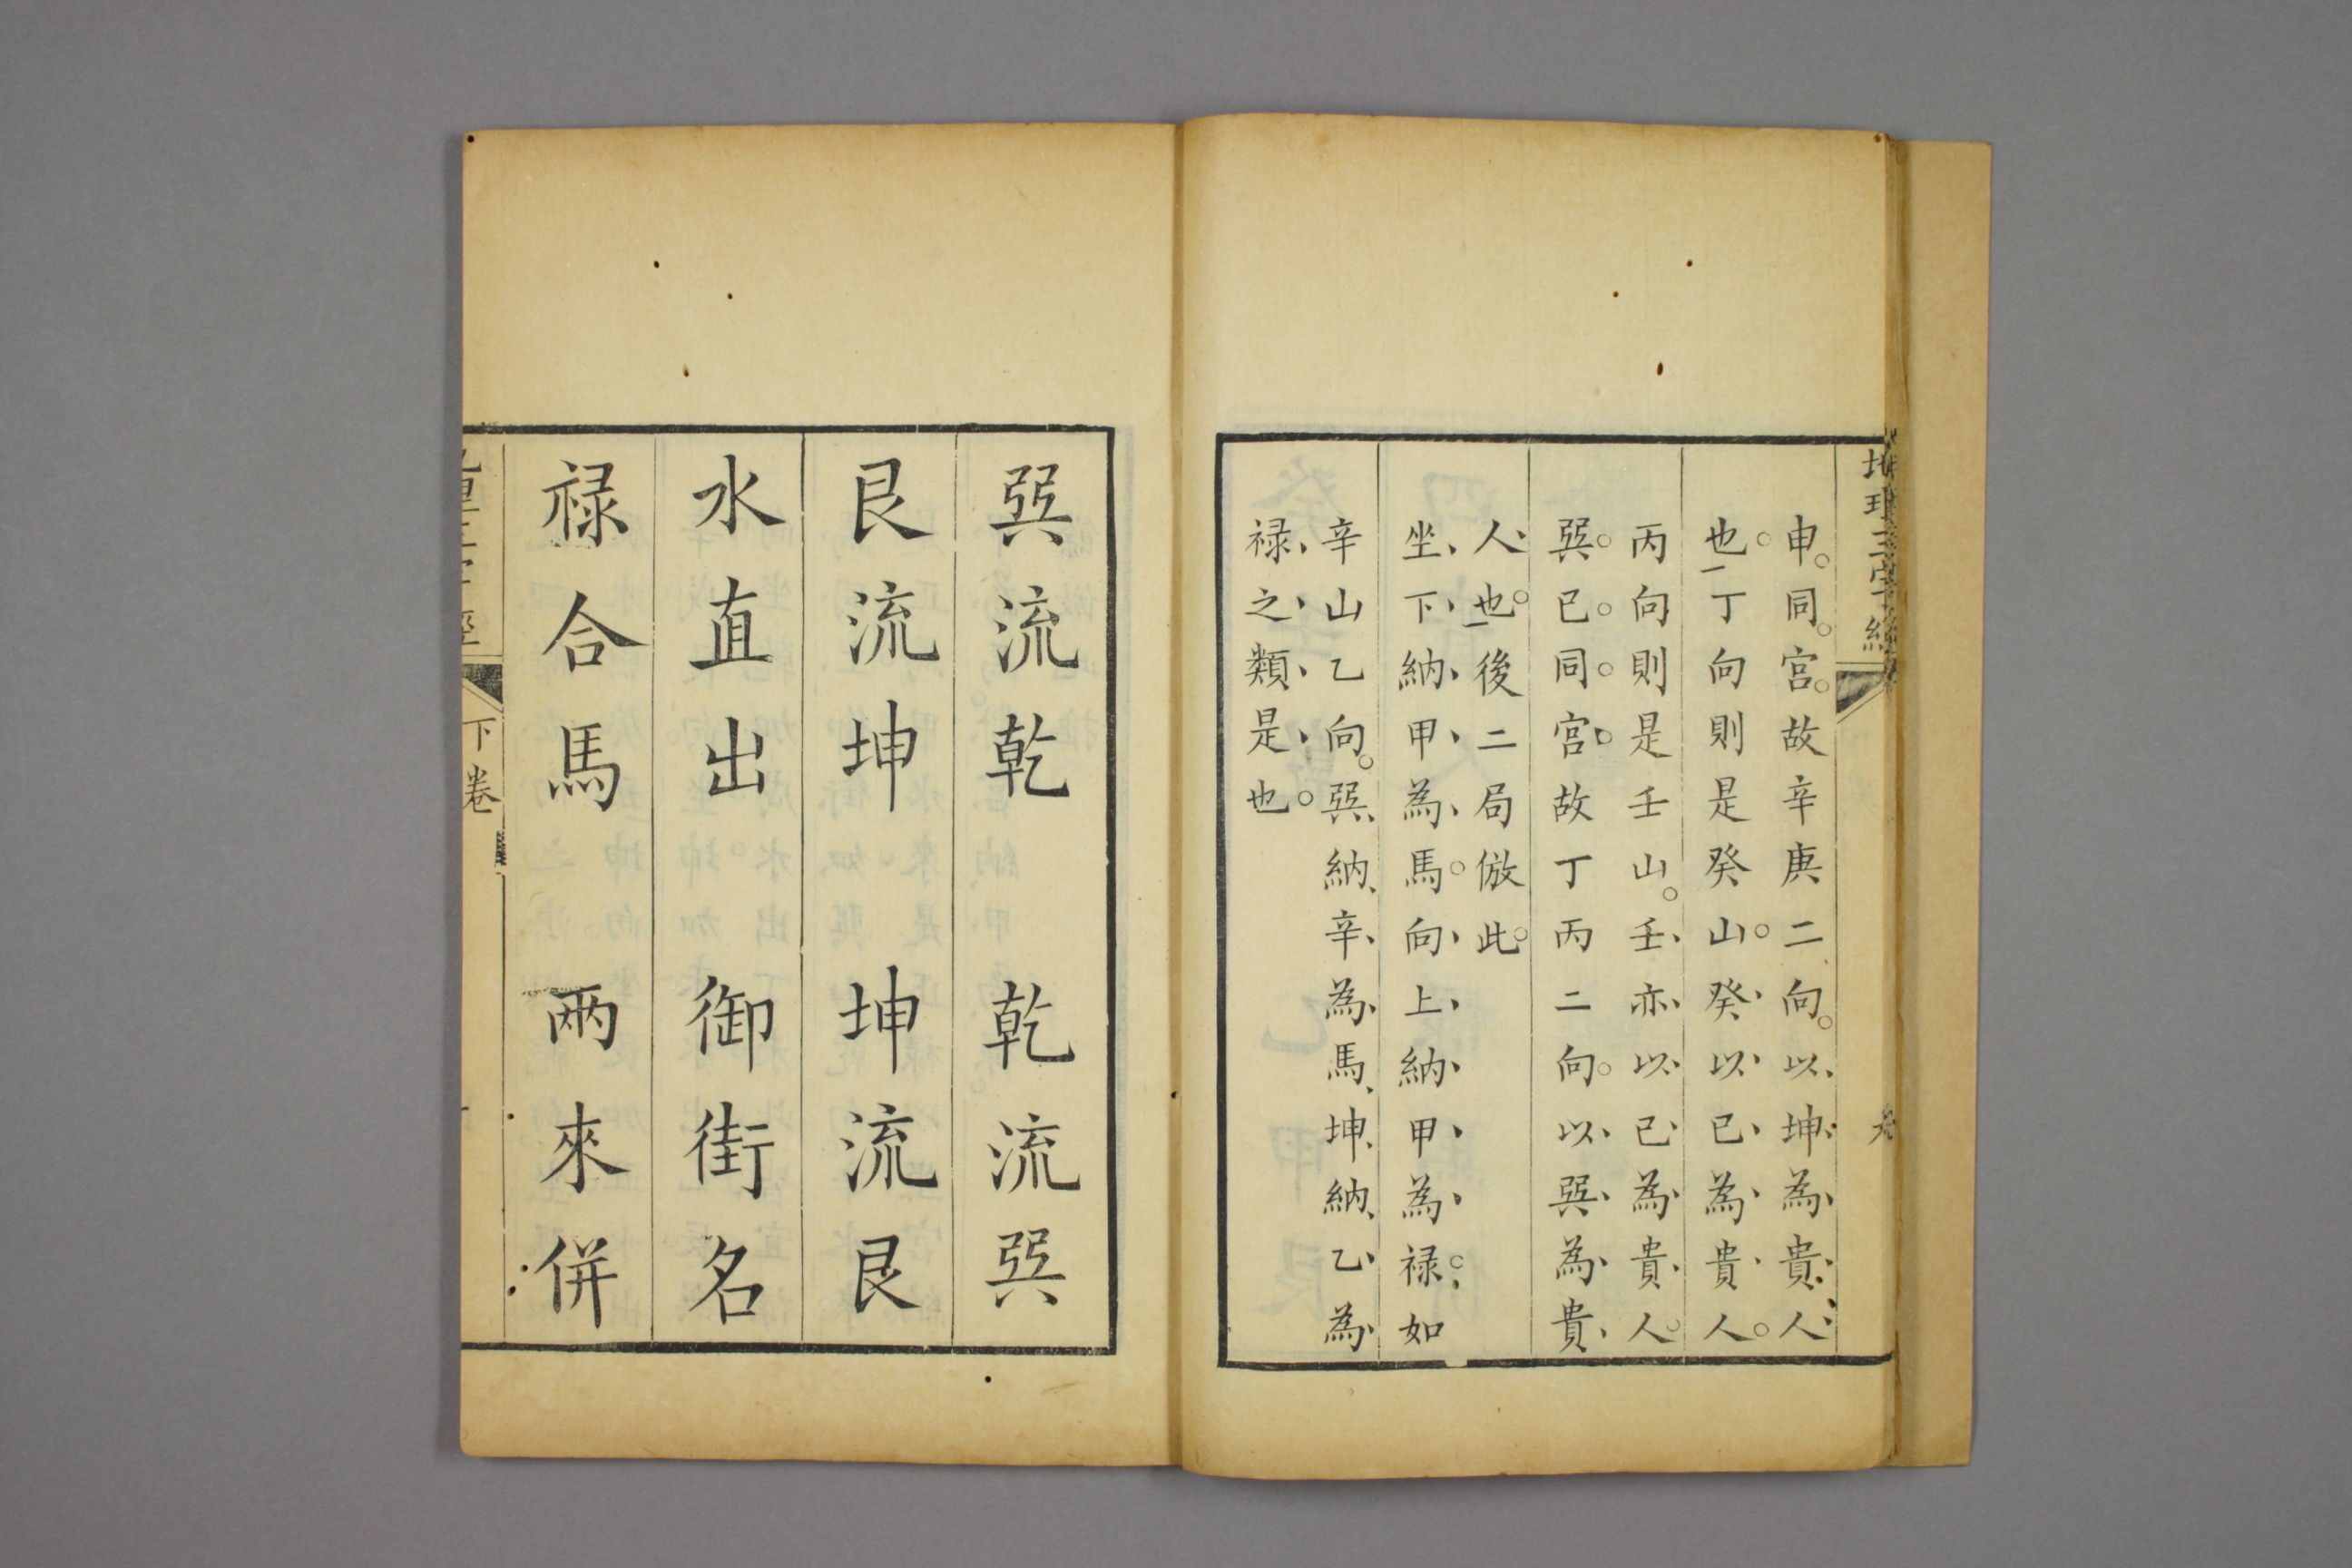 地理三字經
申。同。宮。故辛庚二向。以、坤、為、貴、人、
也。丁向則是癸山。癸、以、已、為、貴、人。
丙向則是壬山。壬、亦、以、已、為、貴、人。
巽。已。同。宮。故丁丙二向。以、巽、為、貴、
人、也。後二局倣此。
坐、下、納、甲、為、馬。向、上、納、甲、為、禄。如
辛山乙向。巽、納、辛、為、馬、坤、納、乙、為、
禄、之、類、是、也。
巽流乾 乾流巽
艮流坤 坤流艮
水直出 御街名
禄合馬 兩來併
下卷